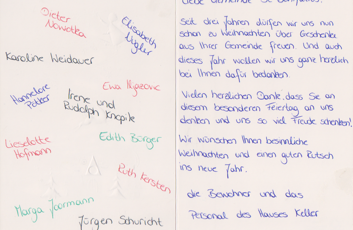 Dieter
Nowotka
Elisabeth
Karoline Weidauer
Ewa
Hannelore
Irene und
Rudolph
Edith Bürger
Lieselotte
Hofmann
Ruth Kersten
Marga
Jürgen Schuricht
Seit drei Jahren dürfen wir uns nun
schon zu Weihnachten über Geschenke
aus Ihrer Gemeinde freuen. Und auch
dieses Jahr wollen wir uns ganz herzlich
bei Ihnen dafür bedanken.
Vielen herzlichen Dank, dass Sie an
diesem besonderen Feiertag an uns
denken und uns so viel Freude schenken!
Wir wünschen Ihnen besinnliche
Weihnachten und einen guten Rutsch
ins neue Jahr.
die Bewohner und das
Personal des Hauses Keller